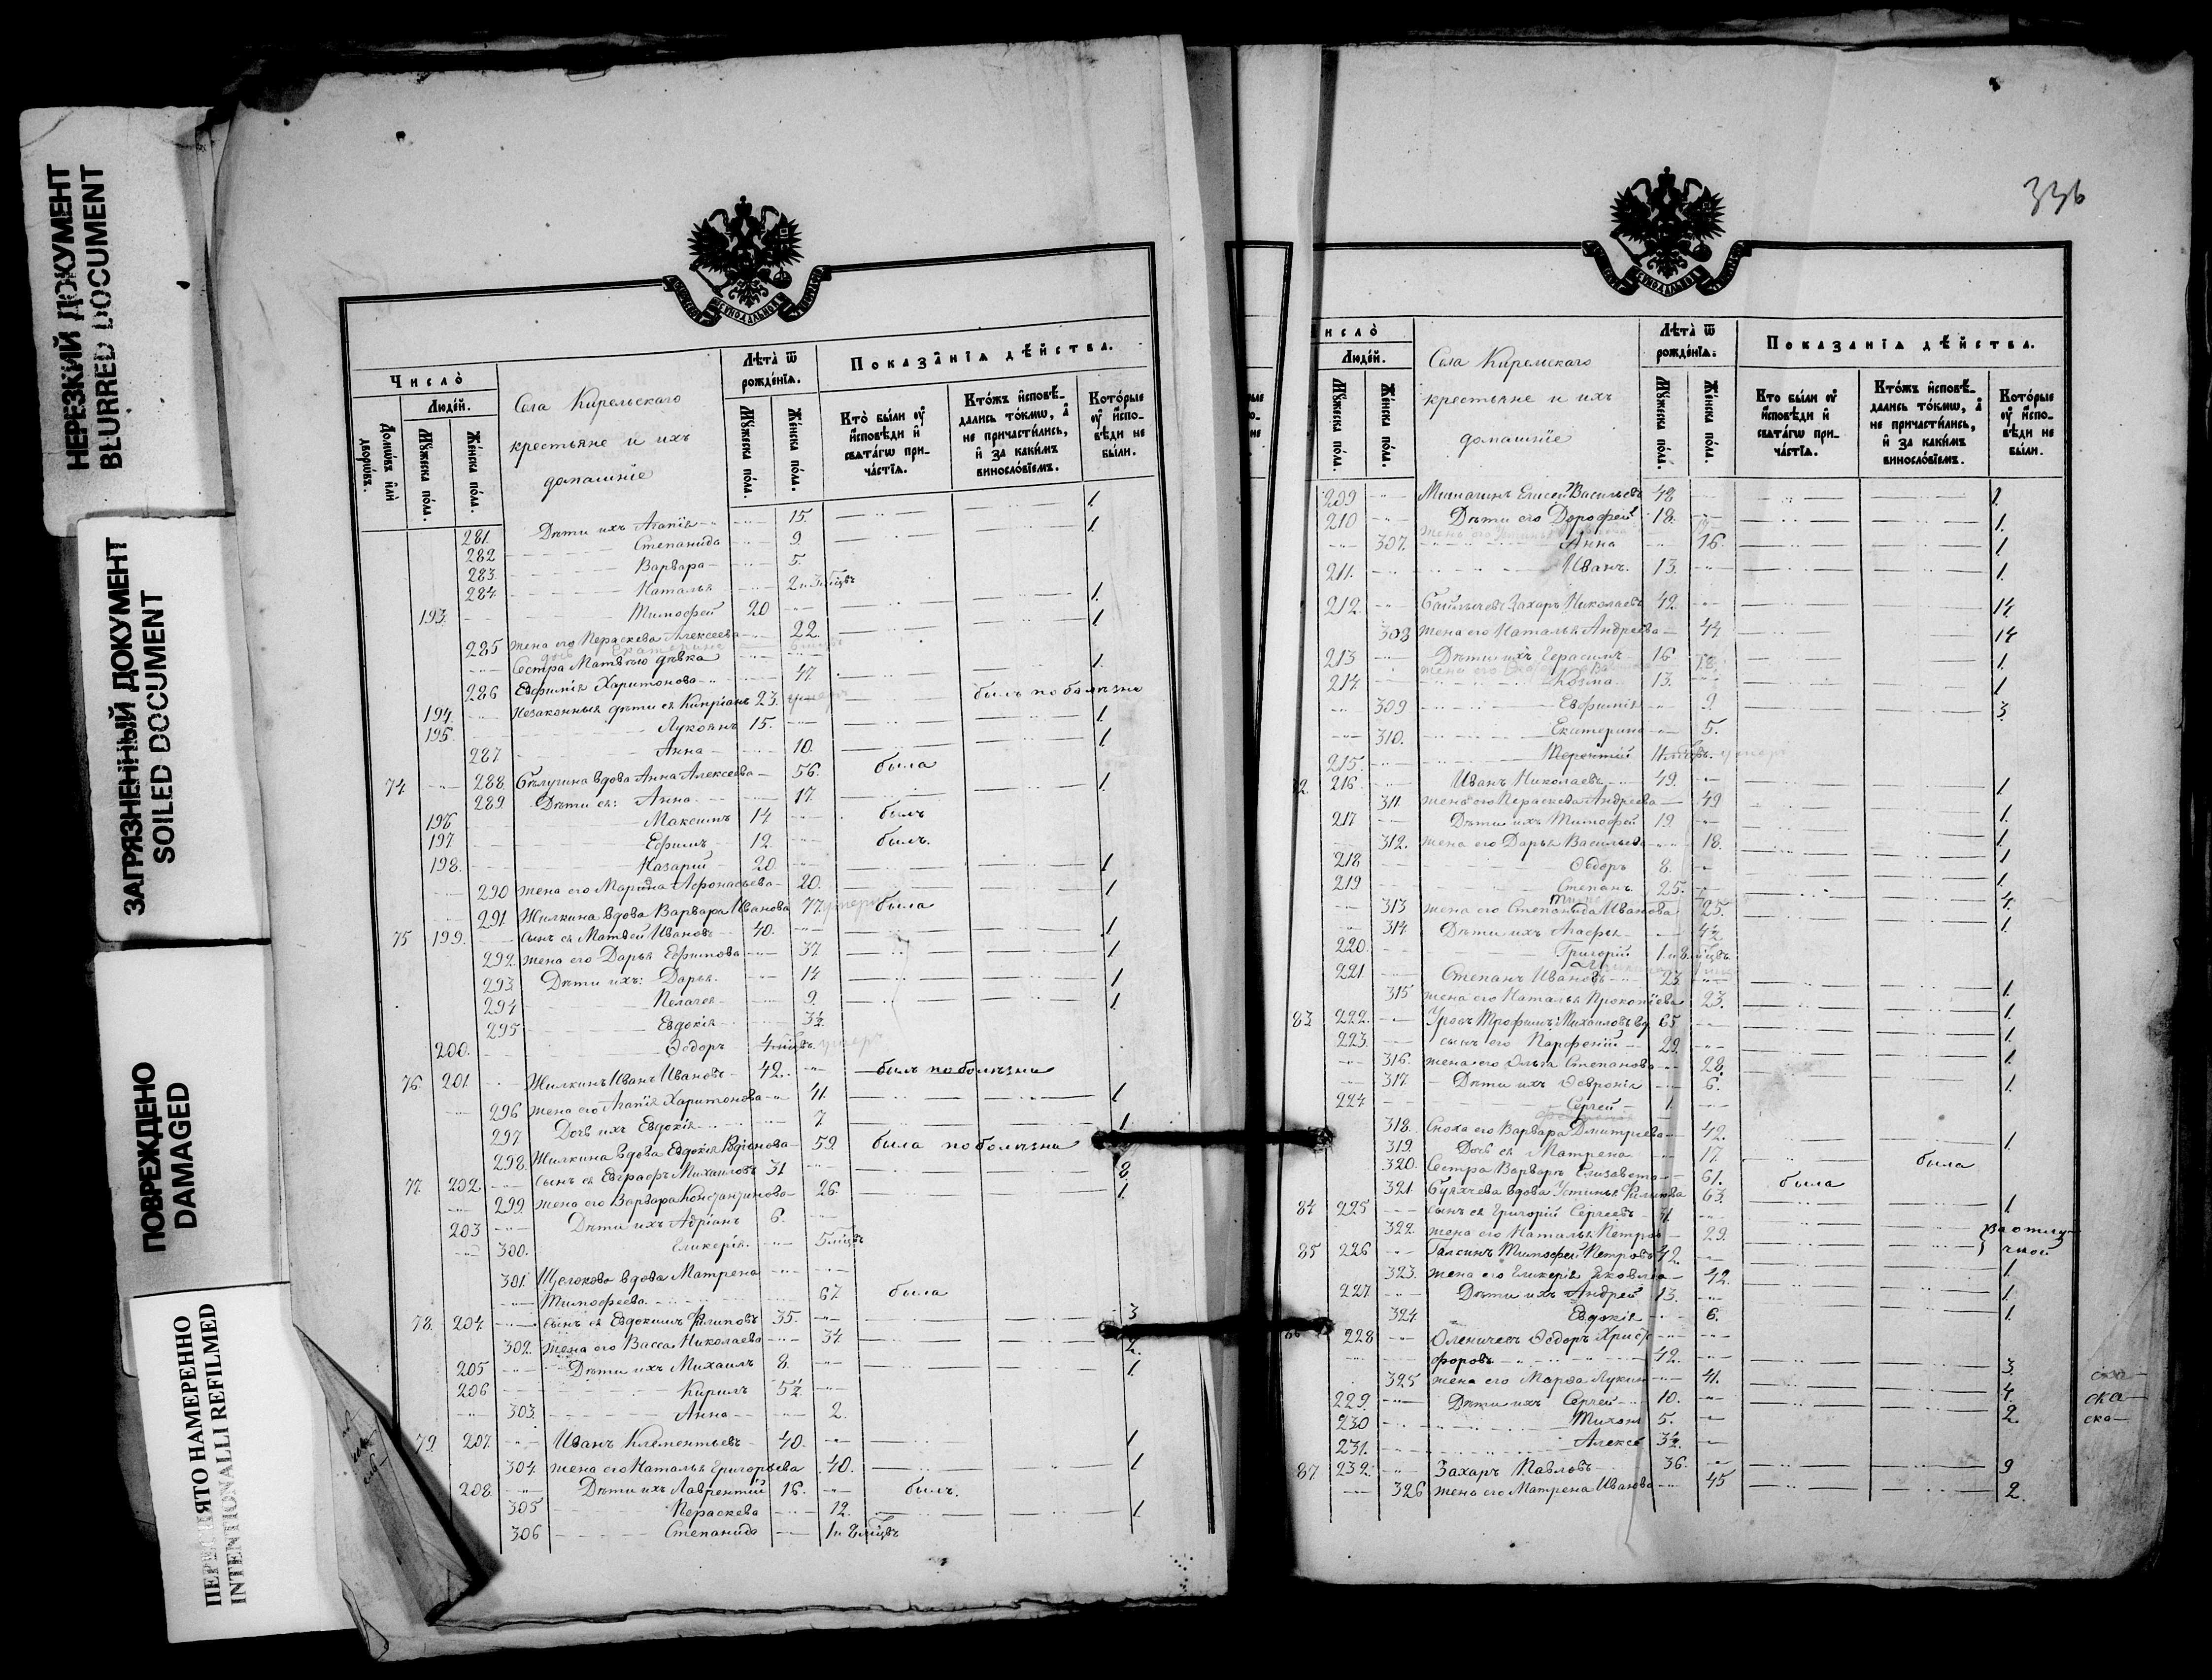 НЕРЕЗКИЙ ДОКУМЕНТ
BLURRED DOCUMENT
ЗАГРЯЗНЕННЫЙ ДОКУМЕНТ
SOILED DOCUMENT
ПОВРЕЖДЕНО
DAMAGED
ПЕРЕСНЯТО НАМЕРЕННО
INTENTIONALLI REFILMED
Число̀
Людей.
Домѡвъ или дворѡвъ.
Мꙋжеска пола.
Женска пола.
Села Кирельскаго
крестьяне и ихъ
домашніе
Лѣта ѿ рожденїѧ.
Мꙋжеска пола.
Женска пола.
Показанїѧ дѣйства.
Кто были оу исповѣди и свѧтагѡ причастїѧ.
Ктожъ исповѣдались токмѡ, а не причастились, и за какимъ винословїемъ.
Которые оу исповѣди не были.
281. Дѣти ихъ Агапія 15. 1.
282 Степанида 9. 1.
283. Варвара 5.
284. Наталья 2 и 3 мѣцвъ
193. Тимофей 20 1.
285 жена его Параскева Алексеева 22. 1.
Сестра Матвѣю дѣвка
286 Евфимія Харитонова 47. 1.
194. Незаконныя дѣти ея Кипріанъ 23. былъ по болѣзни
195. Лукоянъ 15. 1.
287 Анна 10. 1.
74. 288. Бѣлугина вдова Анна Алексеева 56. была
289. Дѣти ея: Анна 17. 1.
196 Максимъ 14 былъ
197 Ефимъ 12. былъ.
198. Назарій 20 1
290 жена его Марина Афонасьева 20. 1
291. Жилкина вдова Варвара Иванова 77. умерла была
75 199. сынъ ея Матвей Ивановъ 40. 1
292. жена его Дарья Ефимова 37 1
293 Дѣти ихъ: Дарья 14 1
294 Пелагея 9. 1.
295 Евдокія 3½.
200. Ѳедоръ 4 мѣцвъ. умеръ
76 201. Жилкинъ Иванъ Ивановъ 42. былъ по болѣзни
296 жена его Агапія Харитонова 41. 1
297 Дочь ихъ Евдокія 7 1.
298. Жилкина вдова Евдокія Родіонова 59. была по болѣзни
77. 202 сынъ ея Евграфъ Михаиловъ 31 8
299. жена его Варвара Константинова 26. 1.
203 Дѣти ихъ Адріанъ 6.
300. Гликерія. 5 мѣцвъ
301. Щелокова вдова Матрена
Тимофеева. 67. была
78. 204. сынъ ея Евдокимъ Филиповъ 35. 3
302. жена его Васса Николаева 34 2.
205 Дѣти ихъ Михаилъ 8. 1.
206 Кирилъ 5½.
303. Анна 2.
79. 207. Иванъ Клементьевъ 40. 1
304. жена его Наталья Григорьева 40. 1
208. Дѣти ихъ Лаврентій 16. былъ.
305 Параскева 12. 1.
306 Степанида 1 и 8 мѣцвъ
336
Число̀
Людей.
Мꙋжеска пола.
Женска пола.
Села Кирельскаго
крестьяне и ихъ
домашніе
Лѣта ѿ рожденїѧ:
Мꙋжеска пола.
Женска пола.
Показанїѧ дѣйства.
Кто были оу исповѣди и свѧтагѡ причастїѧ.
Ктожъ исповѣдались токмѡ, а не причастились, и за какимъ винословїемъ.
Которые оу исповѣди не были.
209 Елисей Васильевъ 48 1.
210 Дѣти его Дорофей 18. 1.
307. Анна 16. 1
211. Иванъ. 13. 1.
212. Захаръ Николаевъ 42. 14
308 жена его Наталья Андреева 44 14
213 Дѣти ихъ Герасимъ 16 1.
214. Козма 13. 1
309 Евфимія 9. 3
310. Екатерина 5.
215. Терентій умеръ
216. Иванъ Николаевъ 49. 1
311. жена его Параскева Андреева 49 1.
217 Дѣти ихъ Тимофей 19 1.
312. жена его Дарья Васильева 18. 1
218 Ѳедоръ 8. 1.
219 Степанъ 25. 4.
313 жена его Степанида Иванова 25. 1.
314 Дѣти ихъ Агафья 4½
220. Григорій 1 и 8 мѣцвъ.
221 Степанъ Ивановъ 23. 1.
315 жена его Наталья Прокопіева 23. 1.
83. 222. Трофимъ Михаиловъ вд 65 1.
223. сынъ его Парфеній 29. 1.
316. жена его Ольга Степанова 28. 1.
317 Дѣти ихъ Ѳевронія 6.
224. Сергей 1.
318. Сноха его Варвара Дмитріева 42. 1
319. Дочь ея Матрена 17. была
320. Сестра Варвары Елизавета 61. была
321. вдова Устинья Филипова 63. 1
84 225 сынъ ея Григорій Сергеевъ 31 въ отлуч-
322. жена его Наталья Петрова 29. ной
85 226 Галкинъ Тимофей Петровъ 42. 1.
323. жена его Гликерія Яковлева 42. 1.
227. Дѣти ихъ Андрей 13. 1.
324 Евдокія 6.
228 Оленичевъ Ѳедоръ Христо-
форовъ 42. 3.
325 жена его Марфа Лукина 41. 4.
229. Дѣти ихъ Сергей 10. 2.
230 Тихонъ 5.
231. Алексѣй 3½.
87 232. Захаръ Павловъ 36. 9
326 жена его Матрена Иванова 45 2.